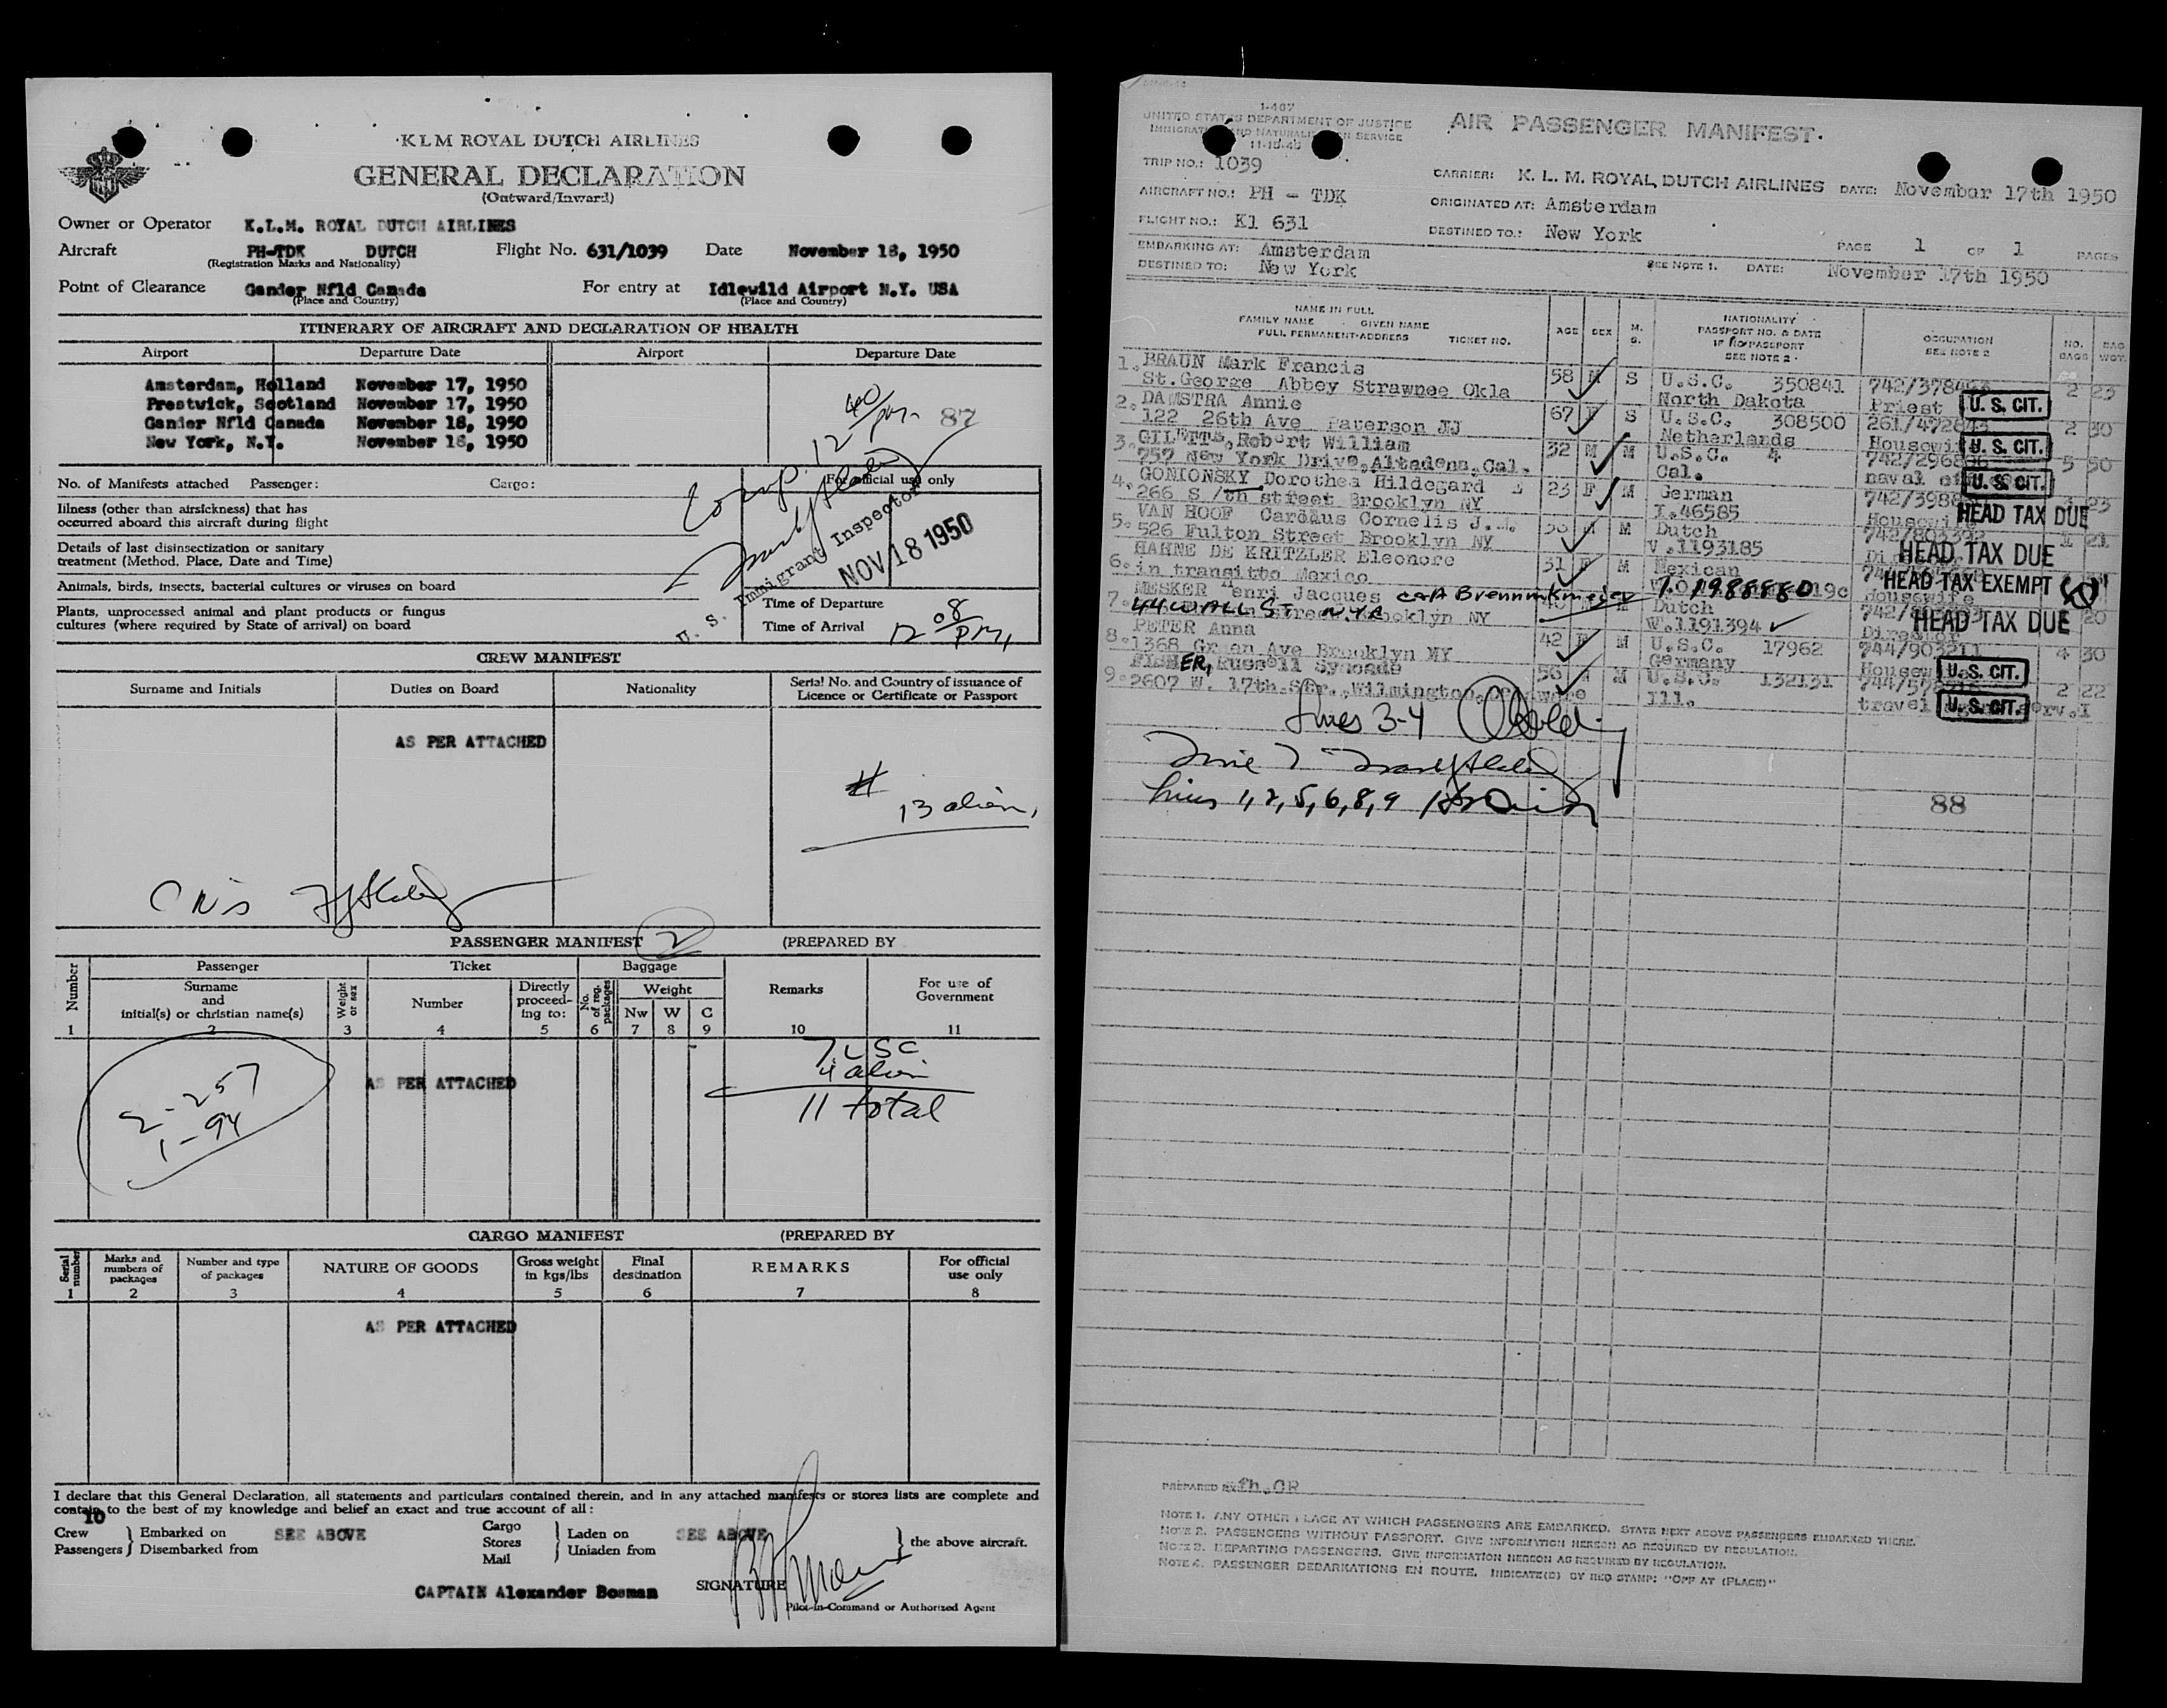 KLM ROYAL DUTCH AIRLINES
GENERAL DECLARATION
(Outward/Inward)
Owner or Operator K.L.M. ROYAL DUTCH AIRLINES
Aircraft PH-TDK DUTCH Flight No. 631/1039 Date November 18, 1950
(Registration Marks and Nationality)
Point of Clearance Gander Nfld Canada For entry at Idlewild Airport N.Y. USA
(Place and Country) (Place and Country)
ITINERARY OF AIRCRAFT AND DECLARATION OF HEALTH
Airport Departure Date Airport Departure Date
Amsterdam, Holland November 17, 1950
Prestwick, Scotland November 17, 1950
Gander Nfld Canada November 18, 1950
New York, N.Y. November 18, 1950
12 40/pm 87
No. of Manifests attached Passenger: Cargo: For official use only
Illness (other than airsickness) that has
occurred aboard this aircraft during flight
Details of last disinsectization or sanitary
treatment (Method, Place, Date and Time)
Animals, birds, insects, bacterial cultures or viruses on board
Plants, unprocessed animal and plant products or fungus
cultures (where required by State of arrival) on board
U. S. Immigrant Inspector
NOV 18 1950
Time of Departure
Time of Arrival 12 08/pm
CREW MANIFEST
Surname and Initials Duties on Board Nationality Serial No. and Country of issuance of
Licence or Certificate or Passport
AS PER ATTACHED
13 alien
PASSENGER MANIFEST 2 (PREPARED BY
Number Passenger Ticket Baggage Remarks For use of
Government
Surname
and
initial(s) or christian name(s)
Weight or sex
Number
Directly
proceed-
ing to:
No. of reg. packages
Weight
Nw W C
1 2 3 4 5 6 7 8 9 10 11
AS PER ATTACHED
2-257
1-94
7 USC
4 alien
11 total
CARGO MANIFEST (PREPARED BY
Serial number
Marks and
numbers of
packages
Number and type
of packages
NATURE OF GOODS
Gross weight
in kgs/lbs
Final
destination
REMARKS
For official
use only
1 2 3 4 5 6 7 8
AS PER ATTACHED
I declare that this General Declaration, all statements and particulars contained therein, and in any attached manifests or stores lists are complete and
contain to the best of my knowledge and belief an exact and true account of all:
10
Crew Embarked on SEE ABOVE Cargo Laden on SEE ABOVE
Passengers Disembarked from Stores Unladen from the above aircraft.
Mail
CAPTAIN Alexander Bosman SIGNATURE
Pilot-in-Command or Authorized Agent
1-467
UNITED STATES DEPARTMENT OF JUSTICE
IMMIGRATION AND NATURALIZATION SERVICE
11-15-45
AIR PASSENGER MANIFEST.
TRIP NO.: 1039 CARRIER: K. L. M. ROYAL DUTCH AIRLINES DATE: November 17th 1950
AIRCRAFT NO.: PH - TDK ORIGINATED AT: Amsterdam
FLIGHT NO.: Kl 631 DESTINED TO.: New York
PAGE 1 OF 1 PAGES
EMBARKING AT: Amsterdam
DESTINED TO: New York SEE NOTE 1. DATE: November 17th 1950
NAME IN FULL
FAMILY NAME GIVEN NAME
FULL PERMANENT ADDRESS TICKET NO.
AGE SEX M. S.
NATIONALITY
PASSPORT NO. & DATE
IF NO PASSPORT
SEE NOTE 2.
OCCUPATION
SEE NOTE 2
NO. BAGS
BAG WGT.
1. BRAUN Mark Francis 58 M S U.S.C. 350841 2 23
St.George Abbey Strawnee Okla North Dakota Priest U. S. CIT.
2. DAMSTRA Annie 67 F S U.S.C. 308500 2 30
122 26th Ave Paterson NJ Netherlands U. S. CIT.
3. Robert William 32 M M U.S.C. 4 5 50
757 New York Drive, Altadena, Cal. Cal. naval U. S. CIT.
4. GONIONSKY Dorothea Hildegard 23 F M German 23
266 S 7th street Brooklyn NY I.46585 HEAD TAX DUE
5. VAN HOOF Cornelis J. M Dutch 1 21
526 Fulton Street Brooklyn NY V.1193185 HEAD TAX DUE
6. HAHNE DE KRITZLER Eleonore 31 F M Mexican
in transitto Mexico Housewife HEAD TAX EXEMPT
7. MESKER Henri Jacques c&A Brenninkmeier Dutch 20
44 WALL ST. N.Y.C. Brooklyn NY W.1191394 Director HEAD TAX DUE
8. PETER Anna 42 F M U.S.C. 17962 744/903211 4 30
1368 Ave Brooklyn NY Germany U.S. CIT.
9. FISHER, Russell 56 M M U.S.C. 132131 2 22
2607 W. 17th Str., Wilmington, Ill. travel U.S. CIT.
lines 3-4
line 7
lines 1,2,5,6,8,9
88
PREPARED BY
NOTE 1. ANY OTHER PLACE AT WHICH PASSENGERS ARE EMBARKED. STATE NEXT ABOVE PASSENGERS EMBARKED THERE.
NOTE 2. PASSENGERS WITHOUT PASSPORT. GIVE INFORMATION HEREON AS REQUIRED BY REGULATION.
NOTE 3. DEPARTING PASSENGERS. GIVE INFORMATION HEREON AS REQUIRED BY REGULATION.
NOTE 4. PASSENGER DEBARKATIONS EN ROUTE. INDICATE(D) BY RED STAMP: "OFF AT (PLACE)"